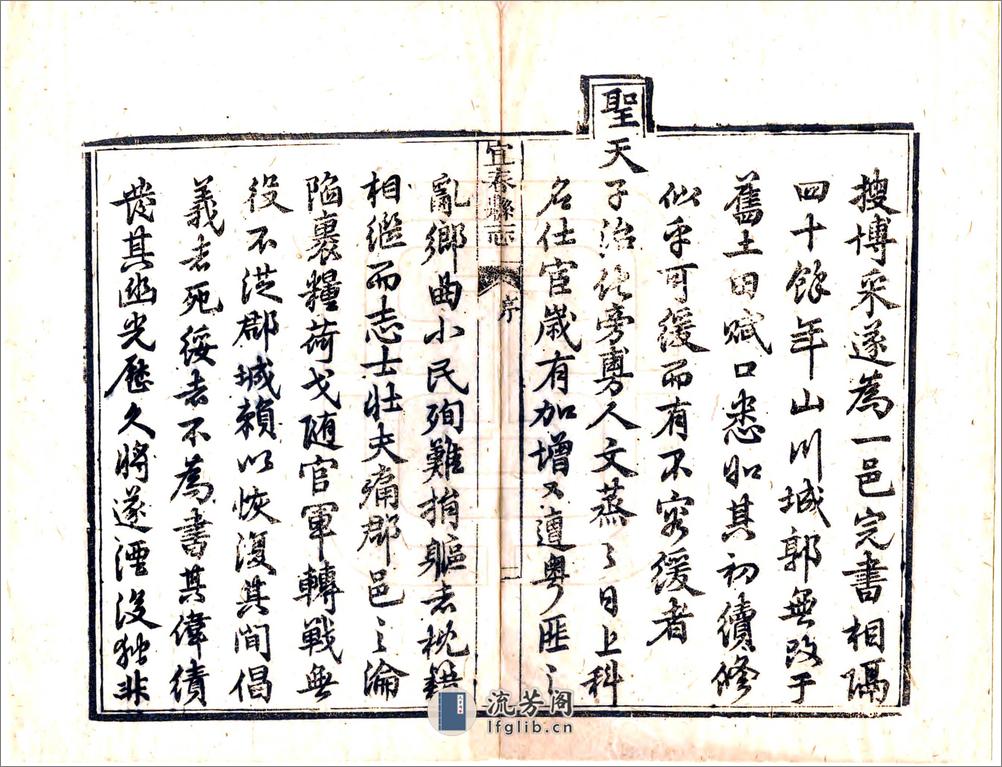 搜博采遂為一邑完書相隔
四十餘年山川城郭無改于
舊土田賦口悉如其初續修
似乎可緩而有不容緩者
聖天
子治化旁敷人文蒸々日上科
名仕宦歲有加增又遭粤匪之
宜春縣志
序
一
亂鄉曲小民殉難捐軀者枕藉
相繼而志士壯夫痛郡邑之淪
陷裹糧荷戈隨官軍轉戰無
役不從郡城賴以恢復其間倡
義者死綏者不為書其偉績
發其幽光歷久將遂湮沒獨非
流芳阁
lfglib.cn